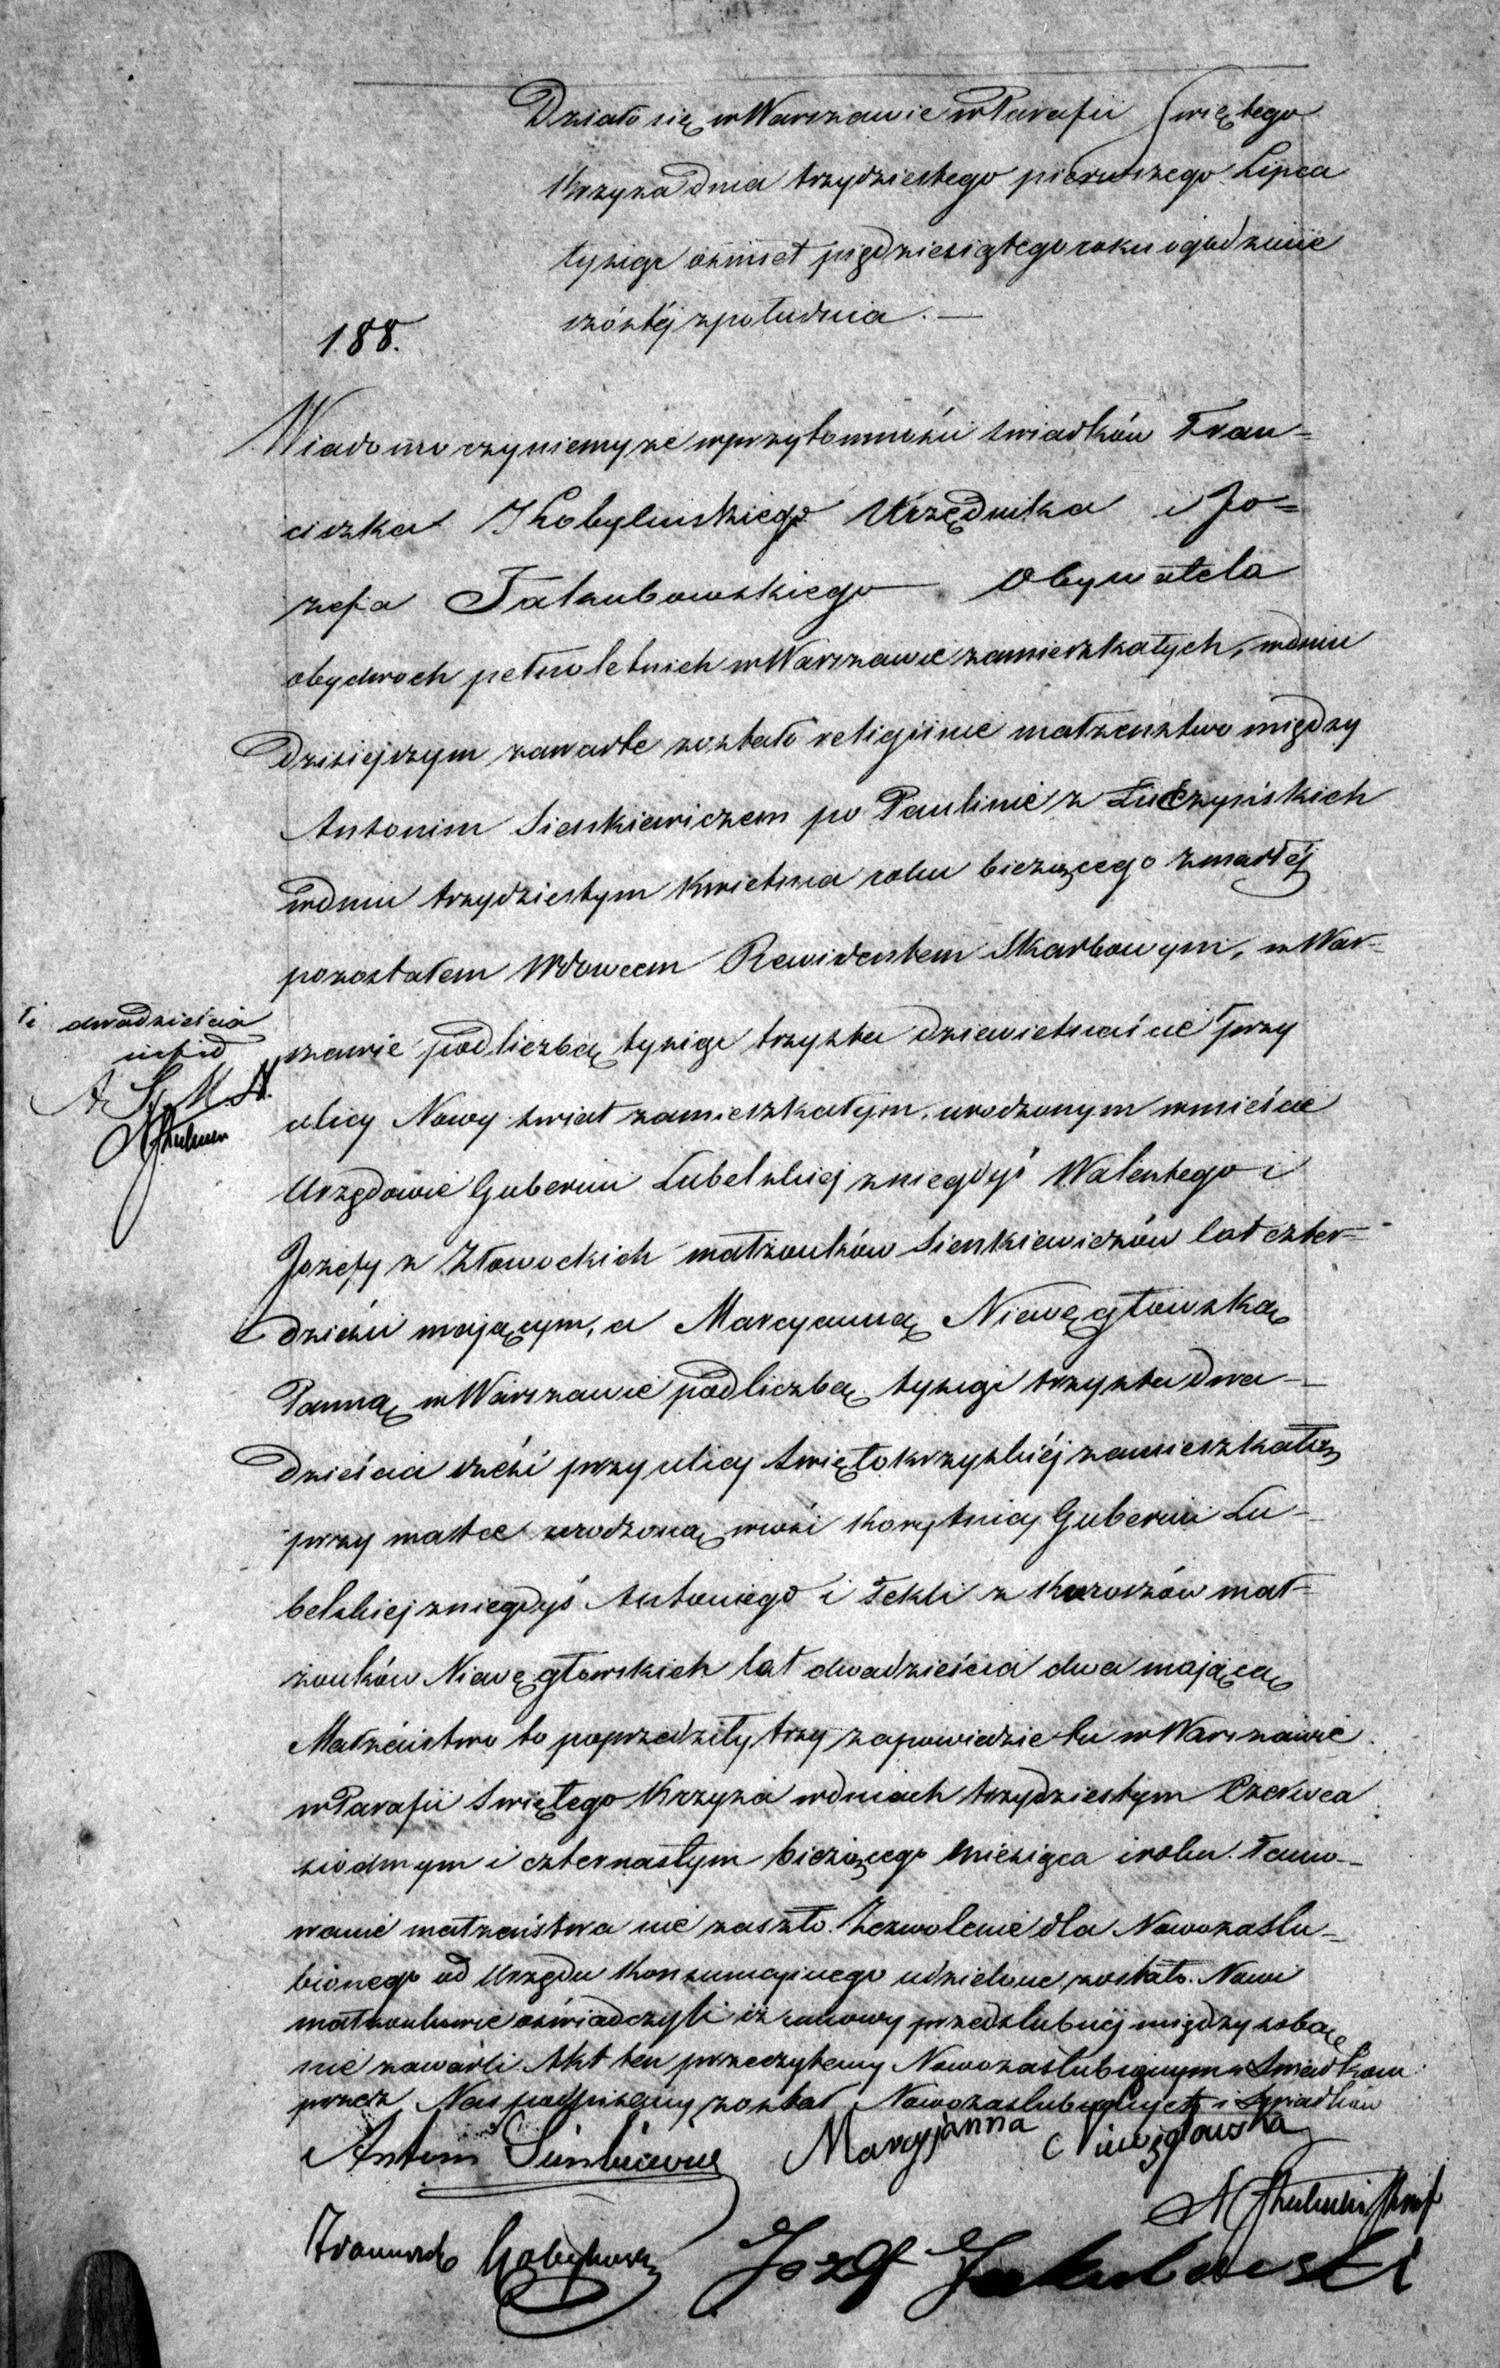 Działo się w Warszawie w Parafii Świętego
Krzyża dnia trzydziestego pierwszego Lipca
tysiąc ośmset pięćdziesiątego roku o godzinie
szóstéj z południa. —
188.
Wiadomo czyniemy że w przytomności świadków Fran=
ciszka Kobylińskiego Urzędnika i Jo=
zefa Jakubowskiego — Obywatela
obydwoch pełnoletnich w Warszawie zamieszkałych, w dniu
dzisiejszym zawarte zostało religijnie małżeństwo między
Antonim Sienkiewiczem po Paulinie z Łuczyńskich
w dniu trzydziestym Kwietnia roku bieżącego zmarłéj
pozostałem Wdowcem Rewidentem Skarbowym, w War-
szawie pod liczbą tysiąc trzysta dziewietnaście przy
i dwadzieścia
A. S. M. N.
ulicy Nowy świat zamieszkałym, urodzonym w mieście
Urzędowie Gubernii Lubelskiej z niegdyś Walentego i
Jozefy z Złowockich małżonków Sienkiewiczów lat czter-
dzieści mającym, a Marcyanną Niewęgłowską
Panną w Warszawie pod liczbą tysiąc trzysta dwa-
dzieścia sześć przy ulicy Świętokrzyskiéj zamieszkałą
przy matce urodzoną we wsi Korytnicy Gubernii Lu-
belskiej z niegdyś Antoniego i Tekli z małż-
żonków Niewęgłowskich lat dwadzieścia dwa mającą
Małżeństwo to poprzedziły trzy zapowiedzie tu w Warszawie
w Parafii Świętego Krzyża w dniach trzydziestym Czerwca
siodmym i czternastym bieżącego miesiąca i roku. Tamo-
wanie małżeństwa nie zaszło. Zezwolenie dla Nowozaślu-
bionego od Urzędu Konsumcyjnego udzielone zostało. Nowi
małżonkowie oświadczyli iż umowy przedślubnéj między sobą
nie zawarli Akt ten przeczytany Nowozaślubionym i Świadkom
przez Nas podpisany został Nowozaślubionych i Świadków
Antoni Sienkiewicz Maryjanna Niewęgłowska
Franciszek Kobyliński Jozef Jakubowski